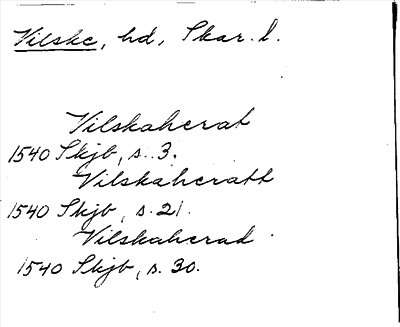 Vilske, hd, Skar. l.
Vilskaherat
1540 Skjb, s. 3.
Vilskaheratt
1540 Skjb, s. 21.
Vilskaherad
1540 Skjb, s. 30.